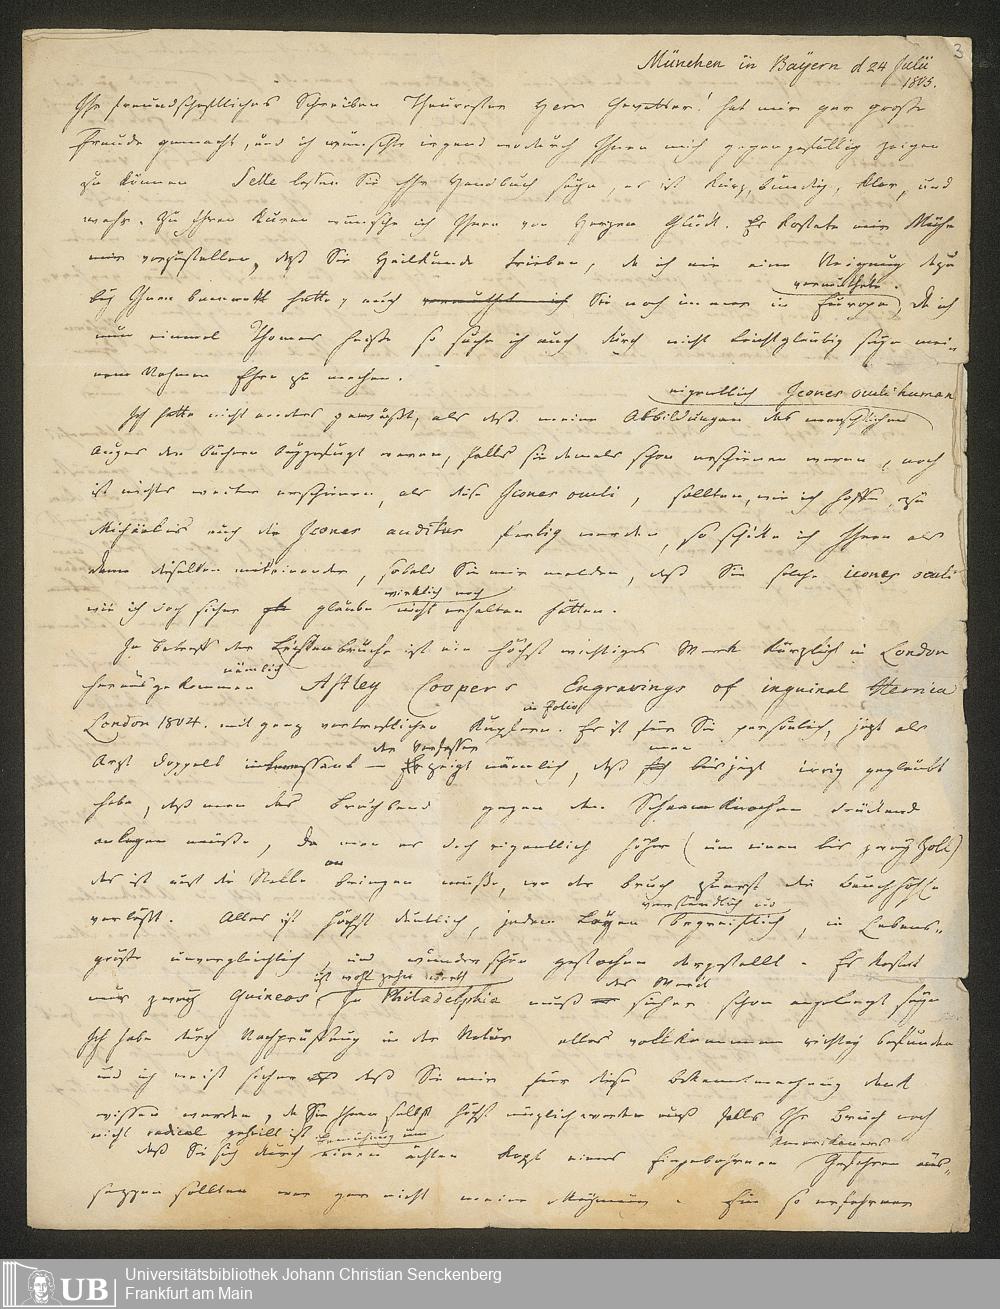 3
München in Bayern d 24 Julii
1805.
Ihr freundschaftliches Schreiben Theurester Herr Gevatter! hat mir gar große
Freude gemacht, und ich wünschte irgend wodurch Ihnen mich gegengefällig zeigen
zu können Selle lassen Sie Ihr Handbuch seyn, es ist kurz, bündig, klar, und
wahr. Zu Ihren Kuren wünsche ich Ihnen von Herzen Glück. Es kostete mir Mühe
mir vorzustellen, daß Sie Heilkunde trieben, da ich nie eine Neigung dazu
vermuthete.
bey Ihnen bemerkt hatte, auch Sie noch immer in Europa, da ich
nun einmal Thomas heiße so suche ich auch durch nicht leichtgläubig seyn mei-
nem Nahmen Ehre zu machen.
eigentlich Icones oculi human
Ich hatte nicht anders gewußt, als daß meine Abbildungen des menschlichen
Auges den Büchern beygefügt waren, falls sie damals schon erschienen waren, noch
ist nichts weiter erschienen, als diese Icones oculi, sollten, wie ich hoffe, zu
Michaelis auch die Icones auditus fertig werden, so schicke ich Ihnen als
dann dieselben miteinander, sobald Sie mir melden, daß Sie solche icones oculi
wirklich noch
wie ich doch sicher glaube nicht erhalten hätten.
In Betreff der Leistenbrüche ist ein höchst wichtiges Werk kürzlich in London
nämlich
herausgekommen Astley Coopers Engravings of inguinal Hernia
in Folio
London 1804. mit ganz vortrefflichen Kupfern. Es ist für Sie persönlich, jetzt als
der Verfasser man
Arzt doppelt interessant — zeigt nämlich, daß bis jetzt irrig geglaubt
habe, daß man das Bruchband gegen den Schaamknochen drückend
anlegen müsse, da man es doch eigentlich höher (um einen bis zwey Zoll)
an
das ist auf die Stelle bringen müsse, wo der Bruch zuerst die Bauchhöhle
verständlich und
verläßt. Alles ist höchst deutlich, jedem Layen begreiflich, in Lebens-
größe unvergleichlich und wunderschön gestochen dargestellt. Es kostet
ist wohl zehn werth das Werk
nur zwey Guineas, In Philadelphia muß sicher schon angelangt seyn
Ich habe durch Nachprüfung in der Natur alles vollkommen richtig befunden
und ich weiß sicher daß Sie mir für diese Bekanntmachung Dank
wissen werden, da Sie Ihnen selbst höchst nützlich werden muß falls Ihr Bruch noch
nicht radical geheilt ist
Bemühung um Amerikaners
daß Sie sich durch einen ächten Kopf eines Eingebohrnen Gefahren aus-
setzen sollten war gar nicht meine Meynung. Ein so erfahrner
Universitätsbibliothek Johann Christian Senckenberg
Frankfurt am Main
UB